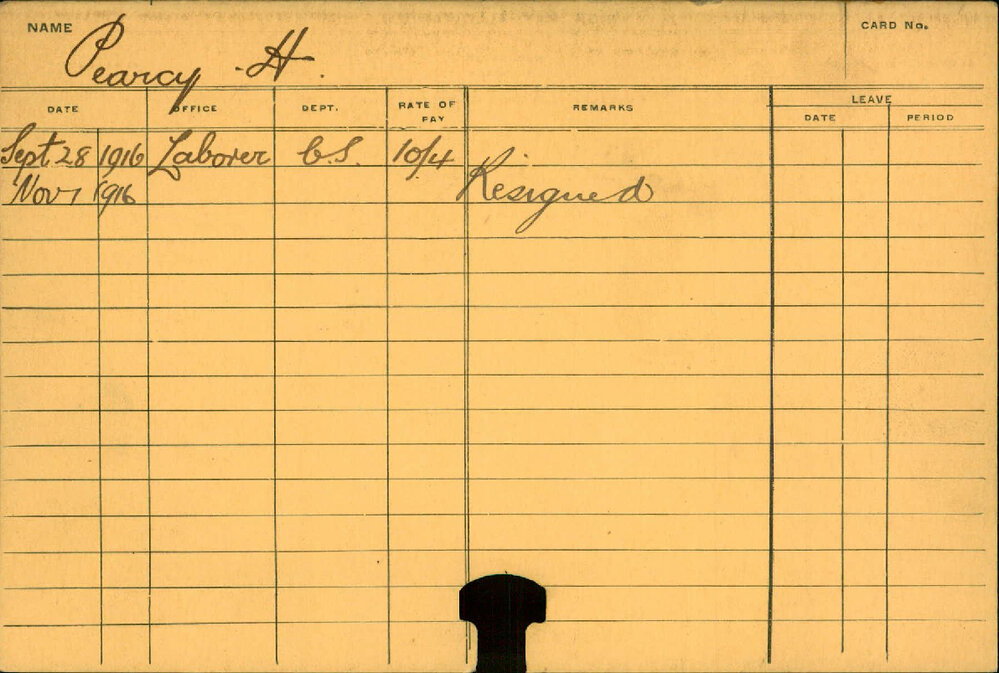 NAME Pearcy H. CARD No.
DATE OFFICE DEPT. RATE OF PAY REMARKS LEAVE
DATE PERIOD
Sept 28 1916 Laborer C.S. 10/4
Nov 1 1916 Resigned